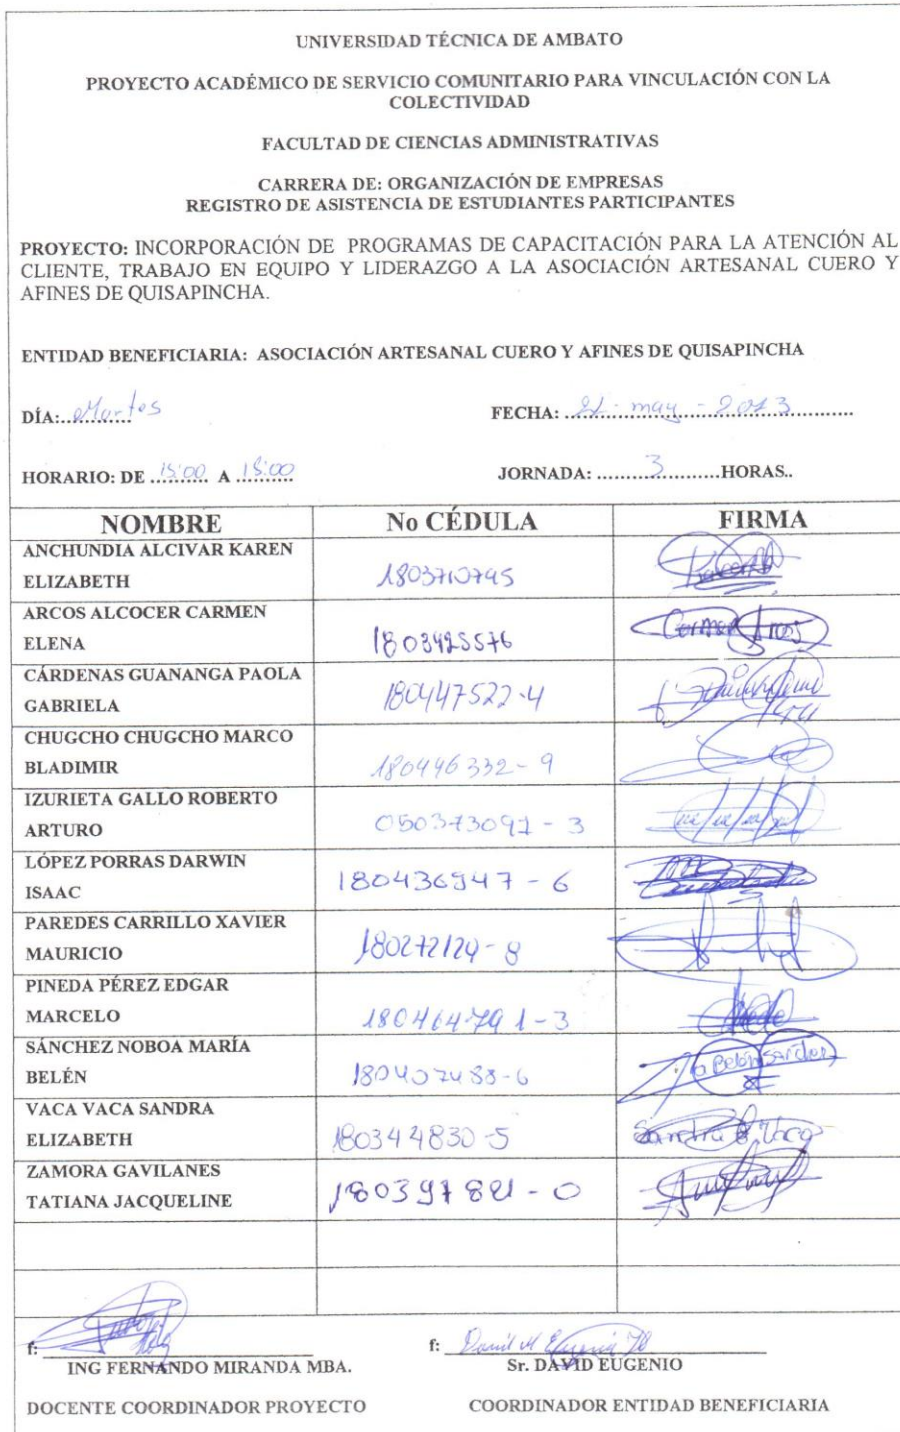 UNIVERSIDAD TÉCNICA DE AMBATO
PROYECTO ACADÉMICO DE SERVICIO COMUNITARIO PARA VINCULACIÓN CON LA
COLECTIVIDAD
FACULTAD DE CIENCIAS ADMINISTRATIVAS
CARRERA DE: ORGANIZACIÓN DE EMPRESAS
REGISTRO DE ASISTENCIA DE ESTUDIANTES PARTICIPANTES
PROYECTO: INCORPORACIÓN DE PROGRAMAS DE CAPACITACIÓN PARA LA ATENCIÓN AL
CLIENTE, TRABAJO EN EQUIPO Y LIDERAZGO A LA ASOCIACIÓN ARTESANAL CUERO Y
AFINES DE QUISAPINCHA.
ENTIDAD BENEFICIARIA: ASOCIACIÓN ARTESANAL CUERO Y AFINES DE QUISAPINCHA
DÍA: Martes FECHA: may - 2013
HORARIO: DE A JORNADA: 3 HORAS..
NOMBRE No CÉDULA FIRMA
ANCHUNDIA ALCIVAR KAREN
ELIZABETH 1803710745
ARCOS ALCOCER CARMEN
ELENA Carmen Arcos
CÁRDENAS GUANANGA PAOLA
GABRIELA 180447522-4
CHUGCHO CHUGCHO MARCO
BLADIMIR 180446332-9
IZURIETA GALLO ROBERTO
ARTURO 050373091-3
LÓPEZ PORRAS DARWIN
ISAAC 180436947-6
PAREDES CARRILLO XAVIER
MAURICIO 180272124-8
PINEDA PÉREZ EDGAR
MARCELO
SÁNCHEZ NOBOA MARÍA
BELÉN Belén Sánchez
VACA VACA SANDRA
ELIZABETH 180344830-5 Sandra Vaca
ZAMORA GAVILANES
TATIANA JACQUELINE
f: f:
ING FERNANDO MIRANDA MBA. Sr. DAVID EUGENIO
DOCENTE COORDINADOR PROYECTO COORDINADOR ENTIDAD BENEFICIARIA